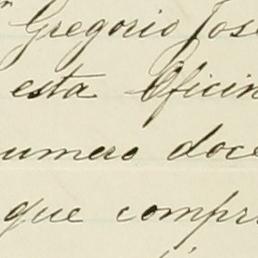 Gregorio José
esta Oficin
umero doce
que compr